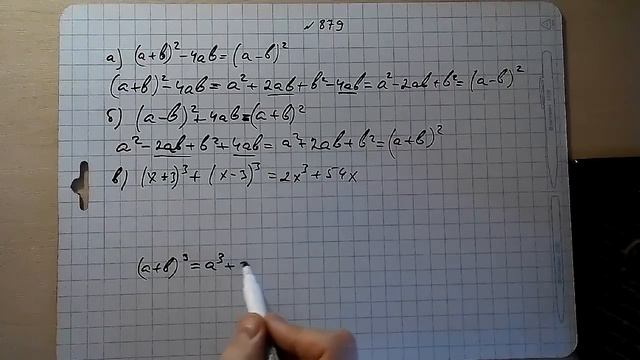 № 879
а) (a+b)² - 4ab = (a-b)²
(a+b)² - 4ab = a² + 2ab + b² - 4ab = a² - 2ab + b² = (a-b)²
б) (a-b)² + 4ab = (a+b)²
a² - 2ab + b² + 4ab = a² + 2ab + b² = (a+b)²
в) (x+3)³ + (x-3)³ = 2x³ + 54x
(a+b)³ = a³ +